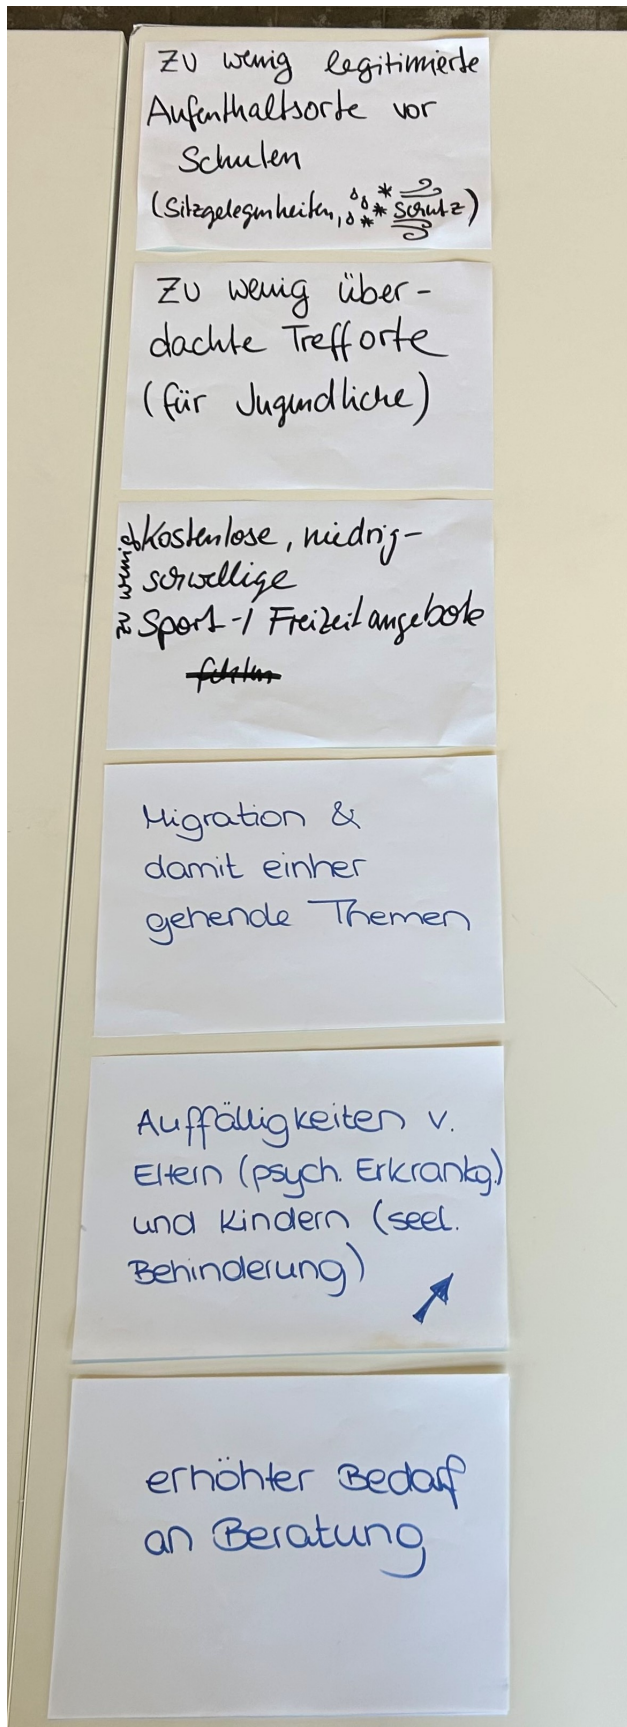 Zu wenig legitimierte
Aufenthaltsorte vor
Schulen
(Sitzgelegenheiten, Schutz)
Zu wenig über-
dachte Trefforte
(für Jugendliche)
zu wenig
Kostenlose, niedrig-
schwellige
Sport-/Freizeitangebote
fehlen
Migration &
damit einher
gehende Themen
Auffälligkeiten v.
Eltern (psych. Erkrankg.)
und Kindern (seel.
Behinderung)
erhöhter Bedarf
an Beratung